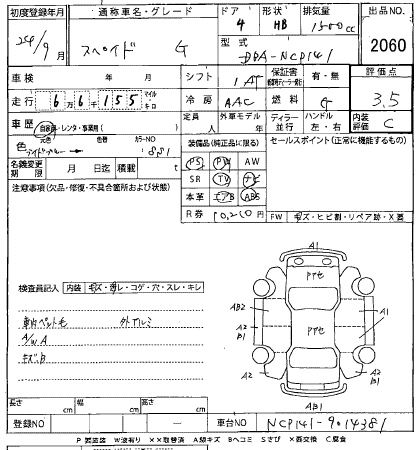 初度登録年月 通称車名・グレード ドア 形状 排気量 出品NO.
24/9月 スペイド G 4 HB 1500cc 2060
型式 DBA-NCP141
車検 年 月 シフト 1 AT 保証書 有・無 評価点
走行 6万6千155 マイル・キロ 冷房 AAC 燃料 G 3.5
車歴 自家用・レンタ・事業用( ) 定員 人 外車モデル 年 ディーラー 並行 ハンドル 左・右 内装評価 C
色 元色 色替 カラーNO 8S1 装備品(純正品に限る) セールスポイント(正常に機能するもの)
PS PW AW
名義変更期限 月 日迄 積載 t SR TV ナビ
注意事項(欠品・修復・不具合箇所および状態) 本革 エアB ABS
R券 10,210円 FW キズ・ヒビ割・リペア跡・X要
A1
Pテモ
検査員記入 内装 キズ・汚レ・コゲ・穴・スレ・キレ
AB2 A2 B1 Pテモ A1
車内ペット毛 外アルミ
A/W A
キズ凹
A2 B1 Pテモ A2 B1
AB1
長さ cm 幅 cm 高さ cm
登録NO ー 車台NO NCP141-9014381
P 要塗装 W波有り ××取替済 A線キズ Bヘコミ Sさび ×要交換 C腐食